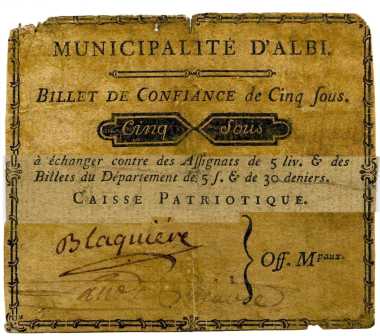 MUNICIPALITÉ D'ALBI.
BILLET DE CONFIANCE de Cinq ſous.
Cinq ſous
à échanger contre des Aſſignats de 5 liv. & des
Billets du Département de 5 ſ. & de 30 deniers.
CAISSE PATRIOTIQUE.
Blaquiére
Off. Mpaux.